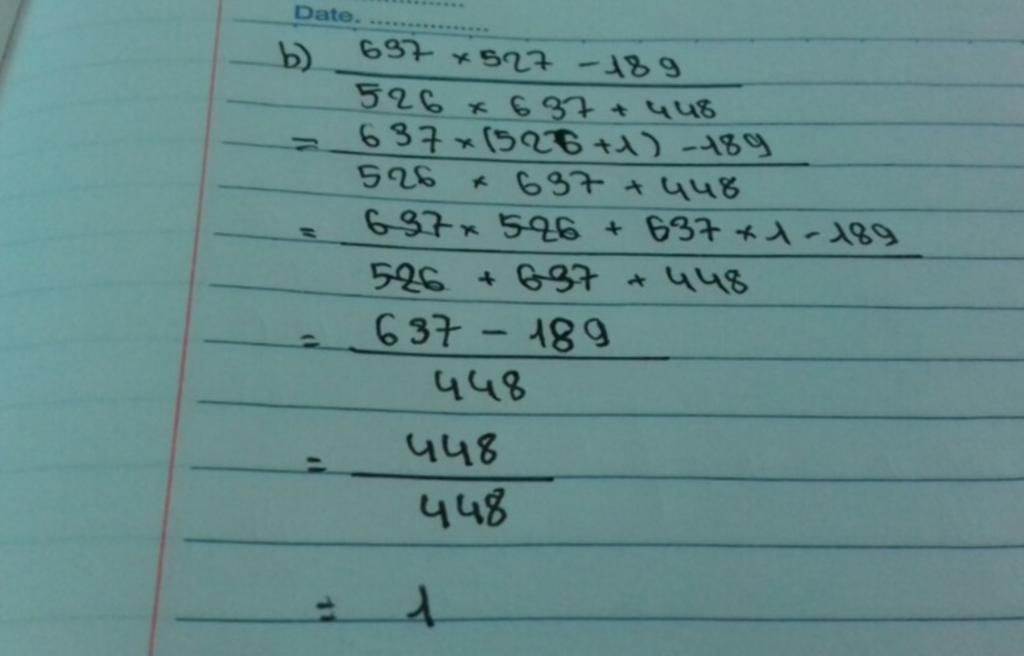 Date. ..............
b) 637 × 527 - 189
526 × 637 + 448
= 637 × (526 + 1) - 189
526 × 637 + 448
= 637 × 526 + 637 × 1 - 189
526 + 637 + 448
= 637 - 189
448
= 448
448
= 1